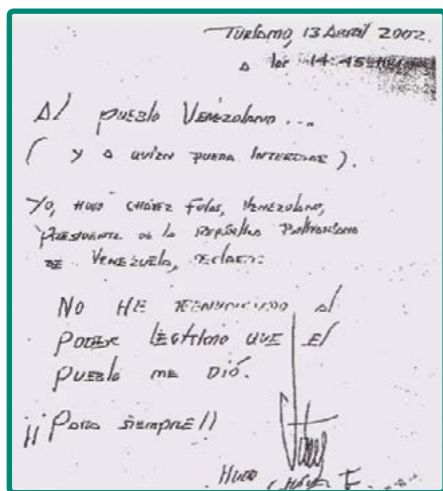 Turiamo, 13 Abril 2002.
a las 14:45 horas
Al pueblo Venezolano...
( y a quien pueda interesar ).
Yo, Hugo Chávez Frías, venezolano,
Presidente de la República Bolivariana
de Venezuela, declaro:
No he renunciado al
poder legítimo que el
pueblo me dió.
¡¡ Para siempre!!
Hugo Chávez F.